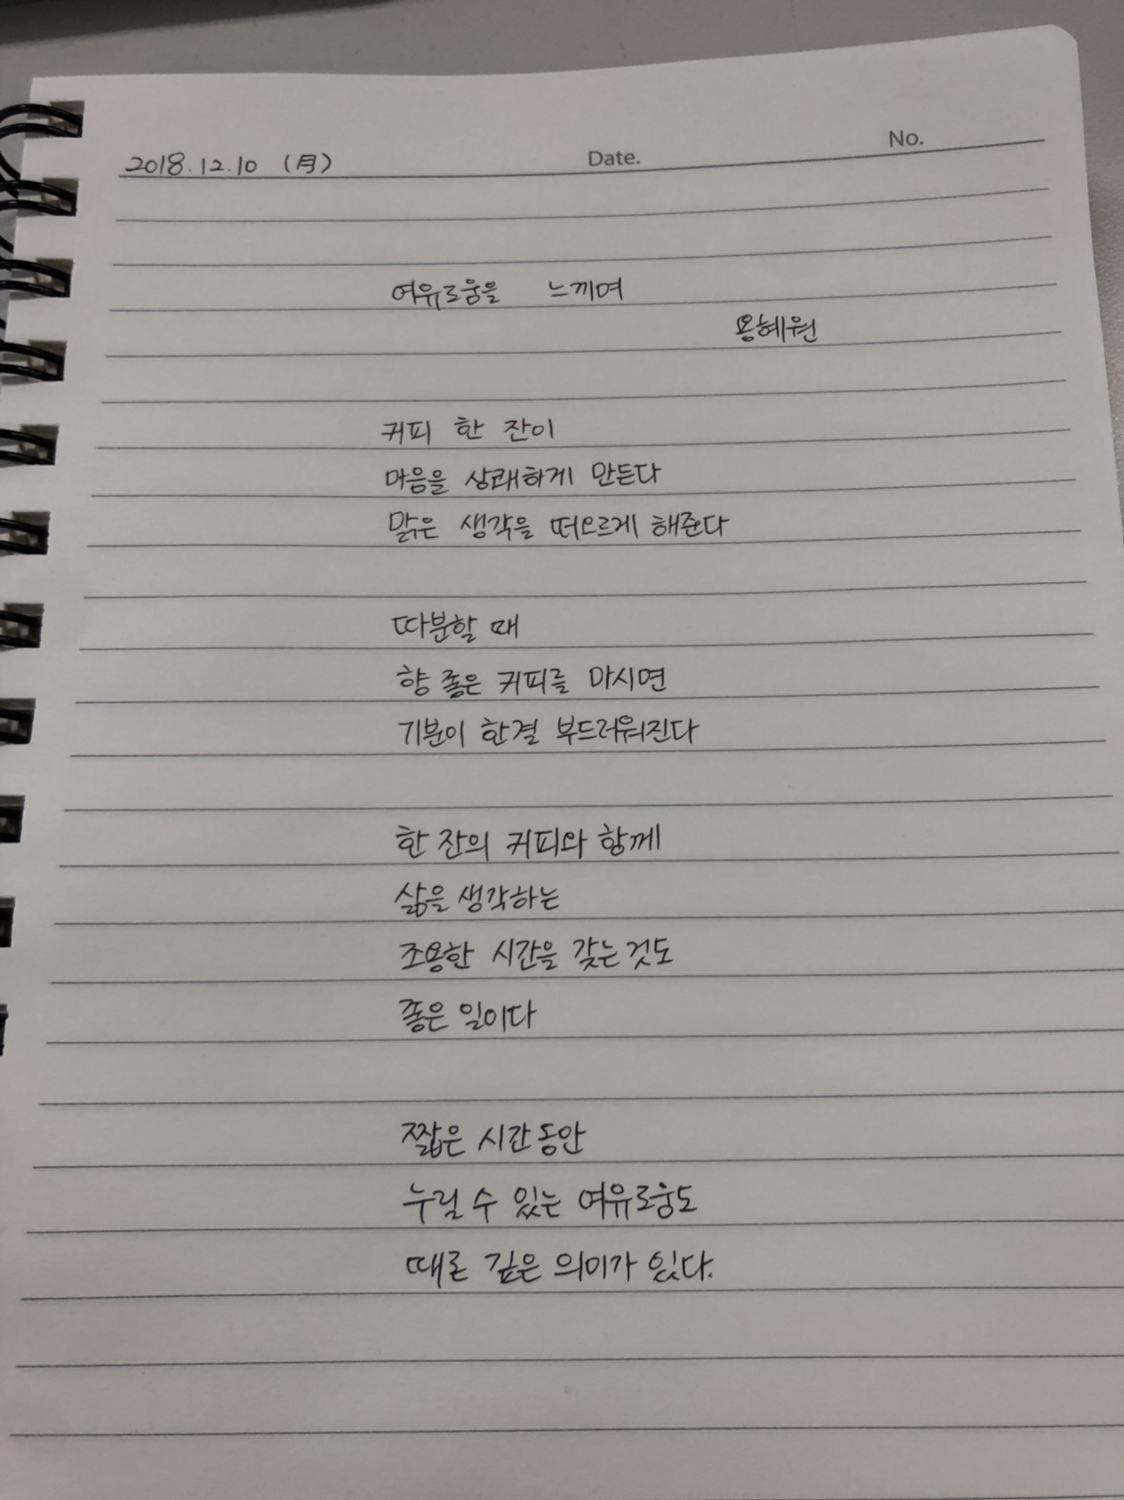 2018.12.10 (月)
Date.
No.
여유로움을 느끼며
용혜원
커피 한 잔이
마음을 상쾌하게 만든다
맑은 생각을 떠오르게 해준다
따분할 때
향 좋은 커피를 마시면
기분이 한결 부드러워진다
한 잔의 커피와 함께
삶을 생각하는
조용한 시간을 갖는것도
좋은 일이다
짧은 시간동안
누릴 수 있는 여유로움도
때로 깊은 의미가 있다.